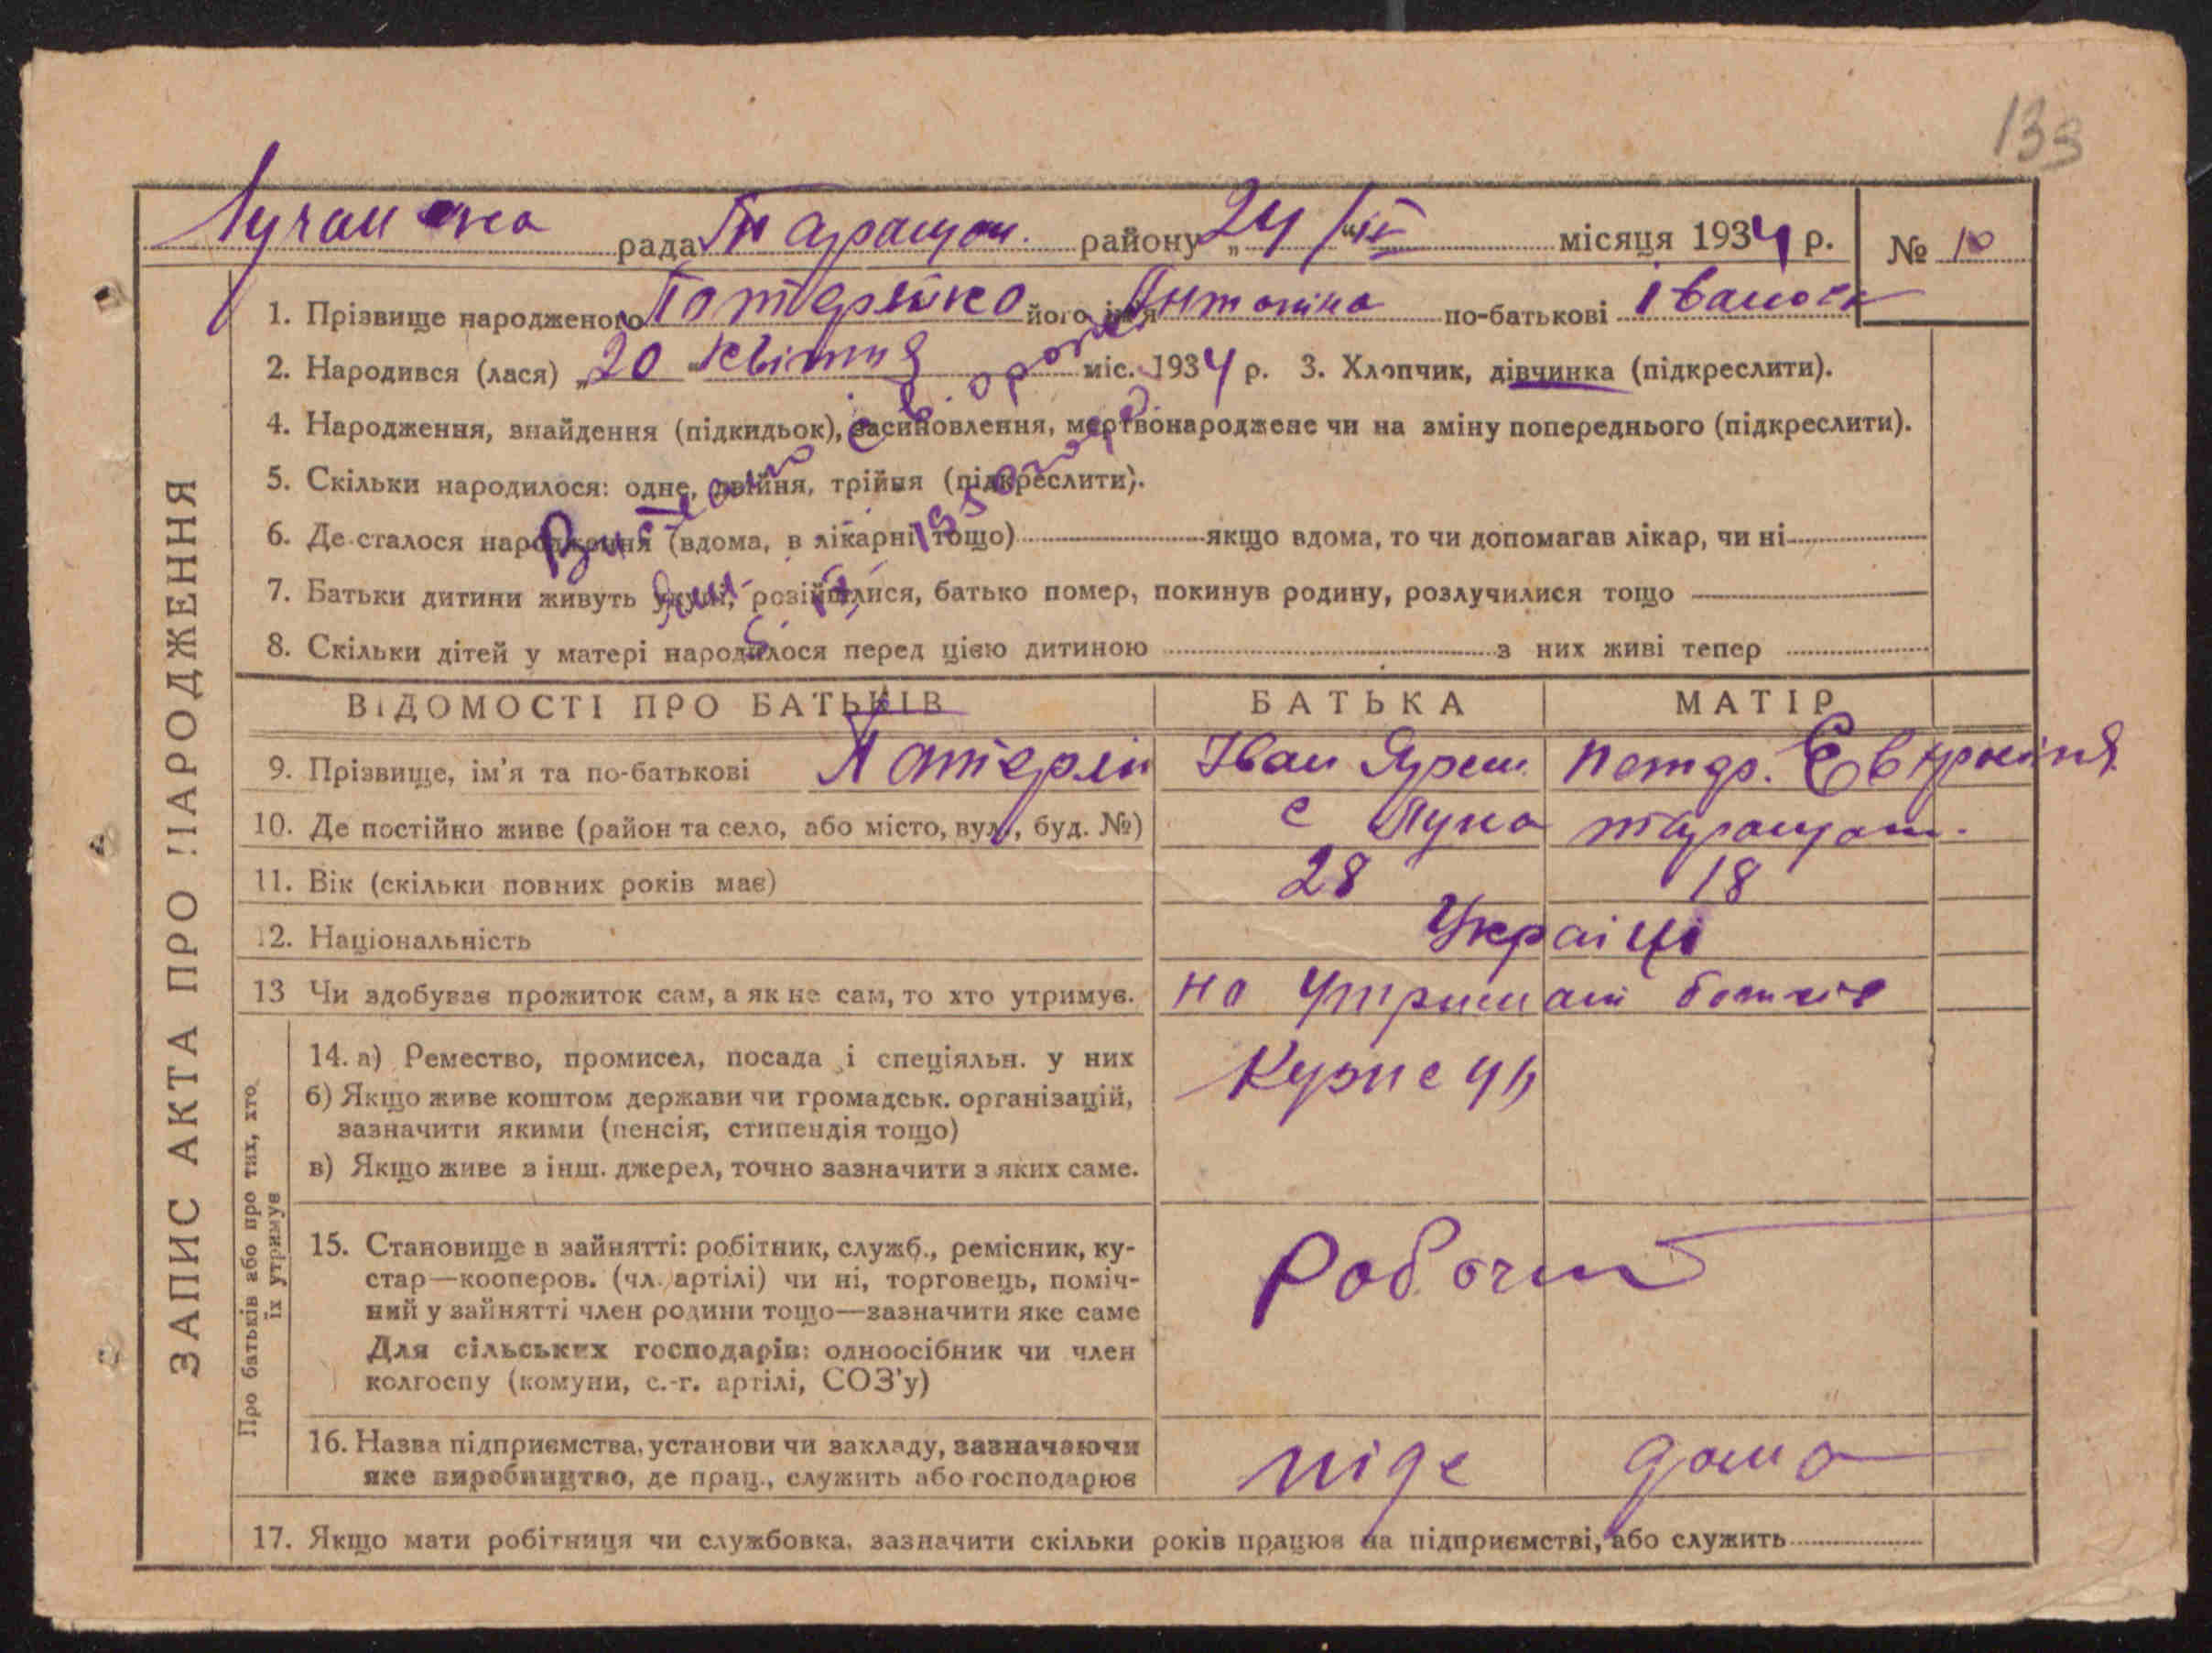 133
рада Таращан. району „24/IV місяця 1934 р. № 10
1. Прізвище народженого його ім'я Антоніна по-батькові Іванов
2. Народився (лася) „20" квітня міс. 1934 р. 3. Хлопчик, дівчинка (підкреслити).
4. Народження, знайдення (підкидьок), засиновлення, мертвонароджене чи на зміну попереднього (підкреслити).
5. Скільки народилося: одне, двійня, трійня (підкреслити).
6. Де сталося народження (вдома, в лікарні тощо) якщо вдома, то чи допомагав лікар, чи ні
7. Батьки дитини живуть укупі, розійшлися, батько помер, покинув родину, розлучилися тощо
8. Скільки дітей у матері народилося перед цією дитиною з них живі тепер
ЗАПИС АКТА ПРО НАРОДЖЕННЯ
ВІДОМОСТІ ПРО БАТЬКІВ БАТЬКА МАТІР
9. Прізвище, ім'я та по-батькові Іван Ярем.
10. Де постійно живе (район та село, або місто, вул., буд. №) с Лука таращан.
11. Вік (скільки повних років має) 28 18
12. Національність Украіці
13 Чи здобуває прожиток сам, а як не сам, то хто утримує. на утримані батків
Про батьків або про тих, хто їх утримує
14. а) Ремество, промисел, посада і спеціяльн. у них Кузнець
б) Якщо живе коштом держави чи громадськ. організацій,
зазначити якими (пенсія, стипендія тощо)
в) Якщо живе з інш. джерел, точно зазначити з яких саме.
15. Становище в зайнятті: робітник, служб., ремісник, ку-
стар—кооперов. (чл. артілі) чи ні, торговець, поміч-
ний у зайнятті член родини тощо—зазначити яке саме
Для сільських господарів: одноосібник чи член
колгоспу (комуни, с.-г. артілі, СОЗ'у)
Робочий
16. Назва підприємства, установи чи закладу, зазначаючи
яке виробництво, де прац., служить або господарює
ніде дома
17. Якщо мати робітниця чи службовка, зазначити скільки років працює на підприємстві, або служить